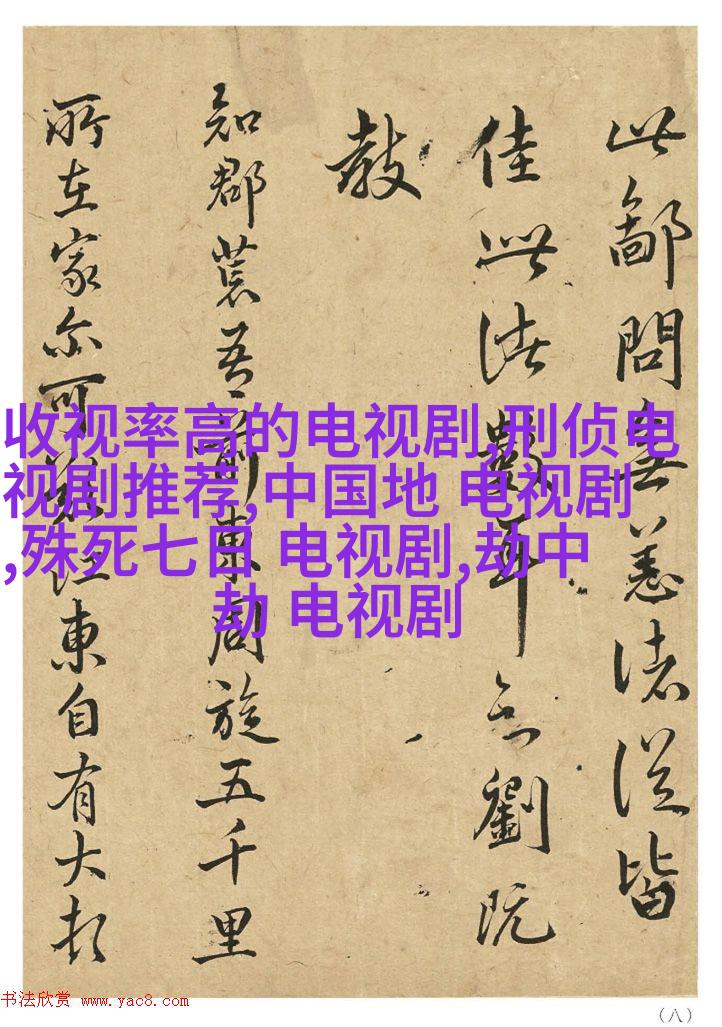 此鄙問無恙諸從皆
佳此數年云劉既
教
知郡荒吾前東周旋五千里
所在家尔可江東自有大
收视率高的电视剧,刑侦电
视剧推荐,中国地 电视剧
,殊死七日 电视剧,劫中
劫 电视剧
书法欣赏 www.yac8.com
（八）